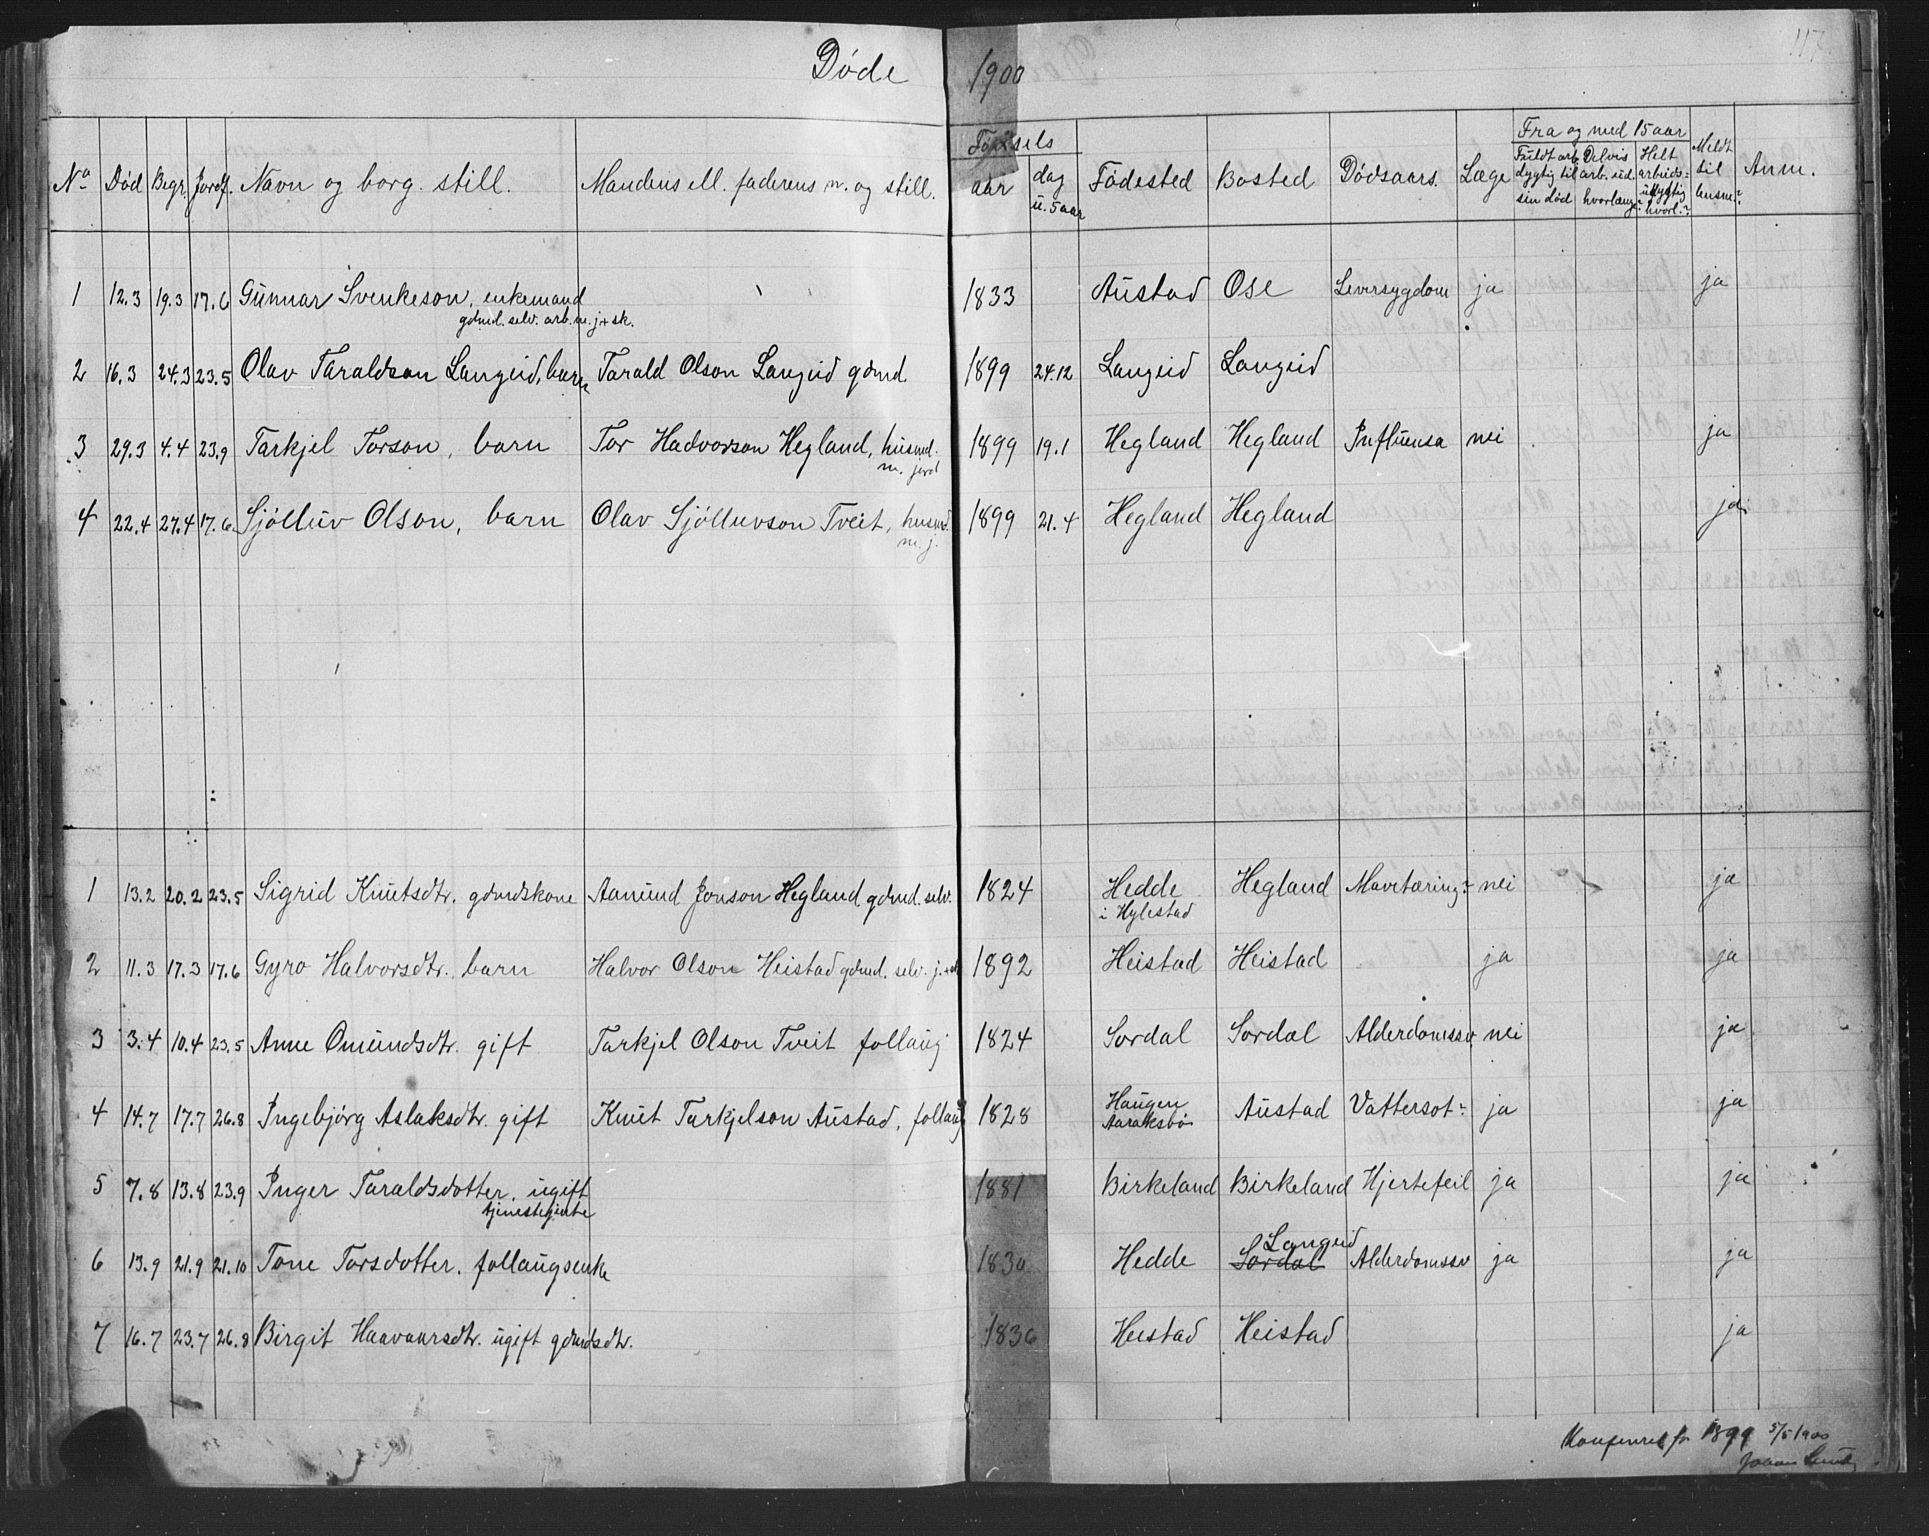 117
Døde 1900
No Død Begr. Jordf. Navn og borg. still. Mandens ell. faderens n. og still. Fødsels aar dag u. 5 aar Fødested Bosted Dødsaars. Læge Fra og med 15 aar Fuldt arb. dygtig til sin død Delvis arb. ud. hvorlænge? Helt arbeids- udygtig hvorl.? Meldt til lensm.? Anm.
1 12.3 19.3 17.6 Gunnar Svenkeson, enkemand 1833 Austad Ose Leversygdom ja ja
gdmd. selv. arb. m. j + sk.
2 16.3 24.3 23.5 Olav Taraldson Langeid, barn Tarald Olson Langeid gdmd. 1899 24.12 Langeid Langeid
3 29.3 4.4 23.9 Tarkjel Torson, barn Tor Hadvorson Hegland, husmd. 1899 19.1 Hegland Hegland Influensa nei ja
m. jord
4 22.4 27.4 17.6 Sjølluv Olson, barn Olav Sjølluvson Tveit, husmd. 1899 21.4 Hegland Hegland ja
m. j.
1 13.2 20.2 23.5 Sigrid Knutsdtr. gdmdskone Aanund Jonson Hegland gdmd. selv. 1824 Hedde Hegland Mavetæring? nei ja
i Hylestad
2 11.3 17.3 17.6 Gyro Halvorsdtr. barn Halvor Olson Heistad gdmd. selv. j. + sk 1892 Heistad Heistad ja ja
3 3.4 10.4 23.5 Anne Omundsdtr. gift Tarkjel Olson Tveit follaug 1824 Sordal Sordal Alderdomssv. nei ja
4 14.7 17.7 26.8 Ingebjørg Aslaksdtr. gift Knut Tarkjelson Austad, follaug 1828 Haugen Austad Vattersot? ja ja
Aaraksbø
5 7.8 13.8 23.9 Inger Taraldsdotter, ugift 1881 Birkeland Birkeland Hjertefeil ja ja
tjenestejente
Langeid
6 13.9 21.9 21.10 Tone Torsdotter. follaugsenke 1830 Hedde Sordal Alderdomssv ja ja
7 16.7 23.7 26.8 Birgit Haavaarsdtr. ugift gdmdsdtr. 1836 Heistad Heistad ja
Konferert for 1899 5/5 1900